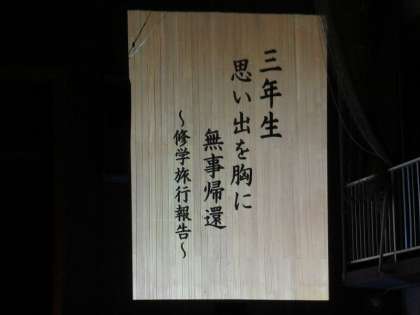 三年生
思い出を胸に
無事帰還
～修学旅行報告～